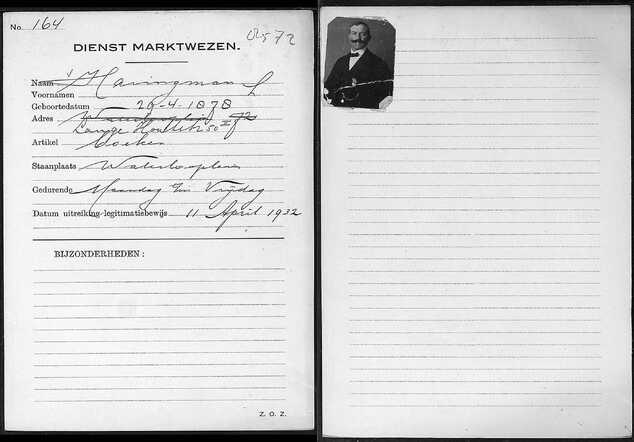 No. 164
DIENST MARKTWEZEN.
Naam Haringman
Voornamen
Geboortedatum 26-4-1878
Adres
Lange Houtstr 50
Artikel boeken
Staanplaats Waterlooplein
Gedurende Maandag t/m Vrijdag
Datum uitreiking-legitimatiebewijs 11 April 1932
BIJZONDERHEDEN :
Z. O. Z.